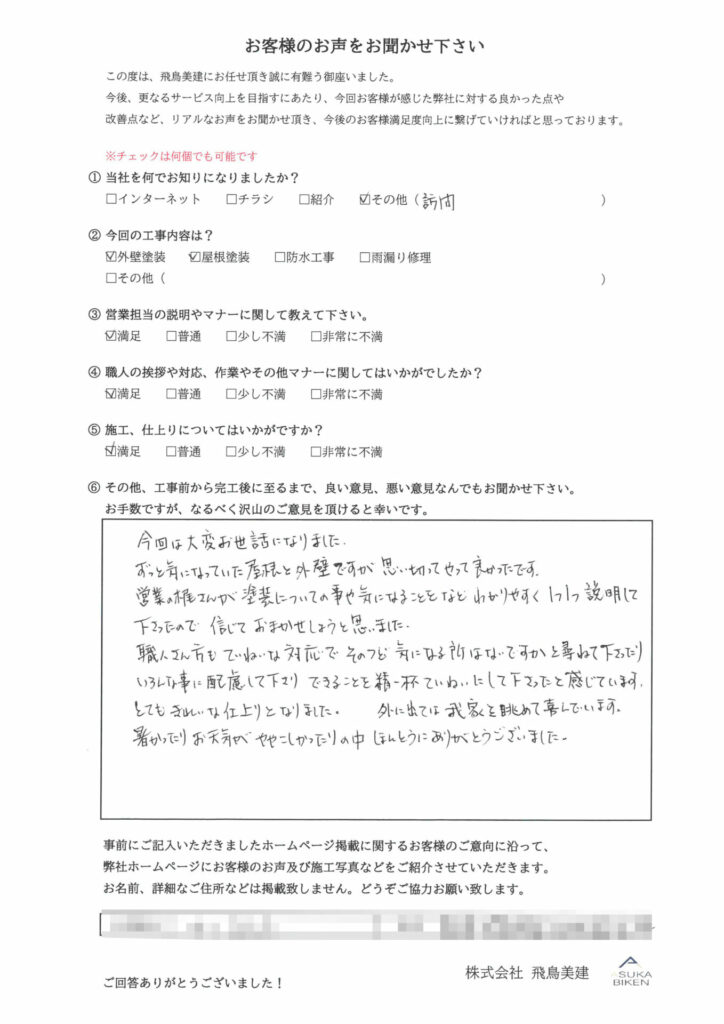 お客様のお声をお聞かせ下さい
この度は、飛鳥美建にお任せ頂き誠に有難う御座いました。
今後、更なるサービス向上を目指すにあたり、今回お客様が感じた弊社に対する良かった点や
改善点など、リアルなお声をお聞かせ頂き、今後のお客様満足度向上に繋げていければと思っております。
※チェックは何個でも可能です
① 当社を何でお知りになりましたか？
□インターネット □チラシ □紹介 ☑その他（訪問 ）
② 今回の工事内容は？
☑外壁塗装 ☑屋根塗装 □防水工事 □雨漏り修理
□その他（ ）
③ 営業担当の説明やマナーに関して教えて下さい。
☑満足 □普通 □少し不満 □非常に不満
④ 職人の挨拶や対応、作業やその他マナーに関してはいかがでしたか？
☑満足 □普通 □少し不満 □非常に不満
⑤ 施工、仕上りについてはいかがですか？
☑満足 □普通 □少し不満 □非常に不満
⑥ その他、工事前から完工後に至るまで、良い意見、悪い意見なんでもお聞かせ下さい。
お手数ですが、なるべく沢山のご意見を頂けると幸いです。
今回は大変お世話になりました.
ずっと気になっていた屋根と外壁ですが 思い切ってやって良かったです.
営業の梶さんが 塗装についての事や気になることをなど わかりやすく 1つ1つ 説明して
下さったので 信じて おまかせしようと思いました.
職人さん方も ていねいな対応で そのつど 気になる所はないですかと尋ねて下さったり
いろんな事に配慮して下さり できることを精一杯ていねいにして下さったと感じています.
とてもきれいな仕上りとなりました. 外に出ては 我家を眺めて喜んでいます.
暑かったりお天気がややこしかったりの中 ほんとうにありがとうございました.
事前にご記入いただきましたホームページ掲載に関するお客様のご意向に沿って、
弊社ホームページにお客様のお声及び施工写真などをご紹介させていただきます。
お名前、詳細なご住所などは掲載致しません。どうぞご協力お願い致します。
株式会社 飛鳥美建
ASUKA
BIKEN
ご回答ありがとうございました！